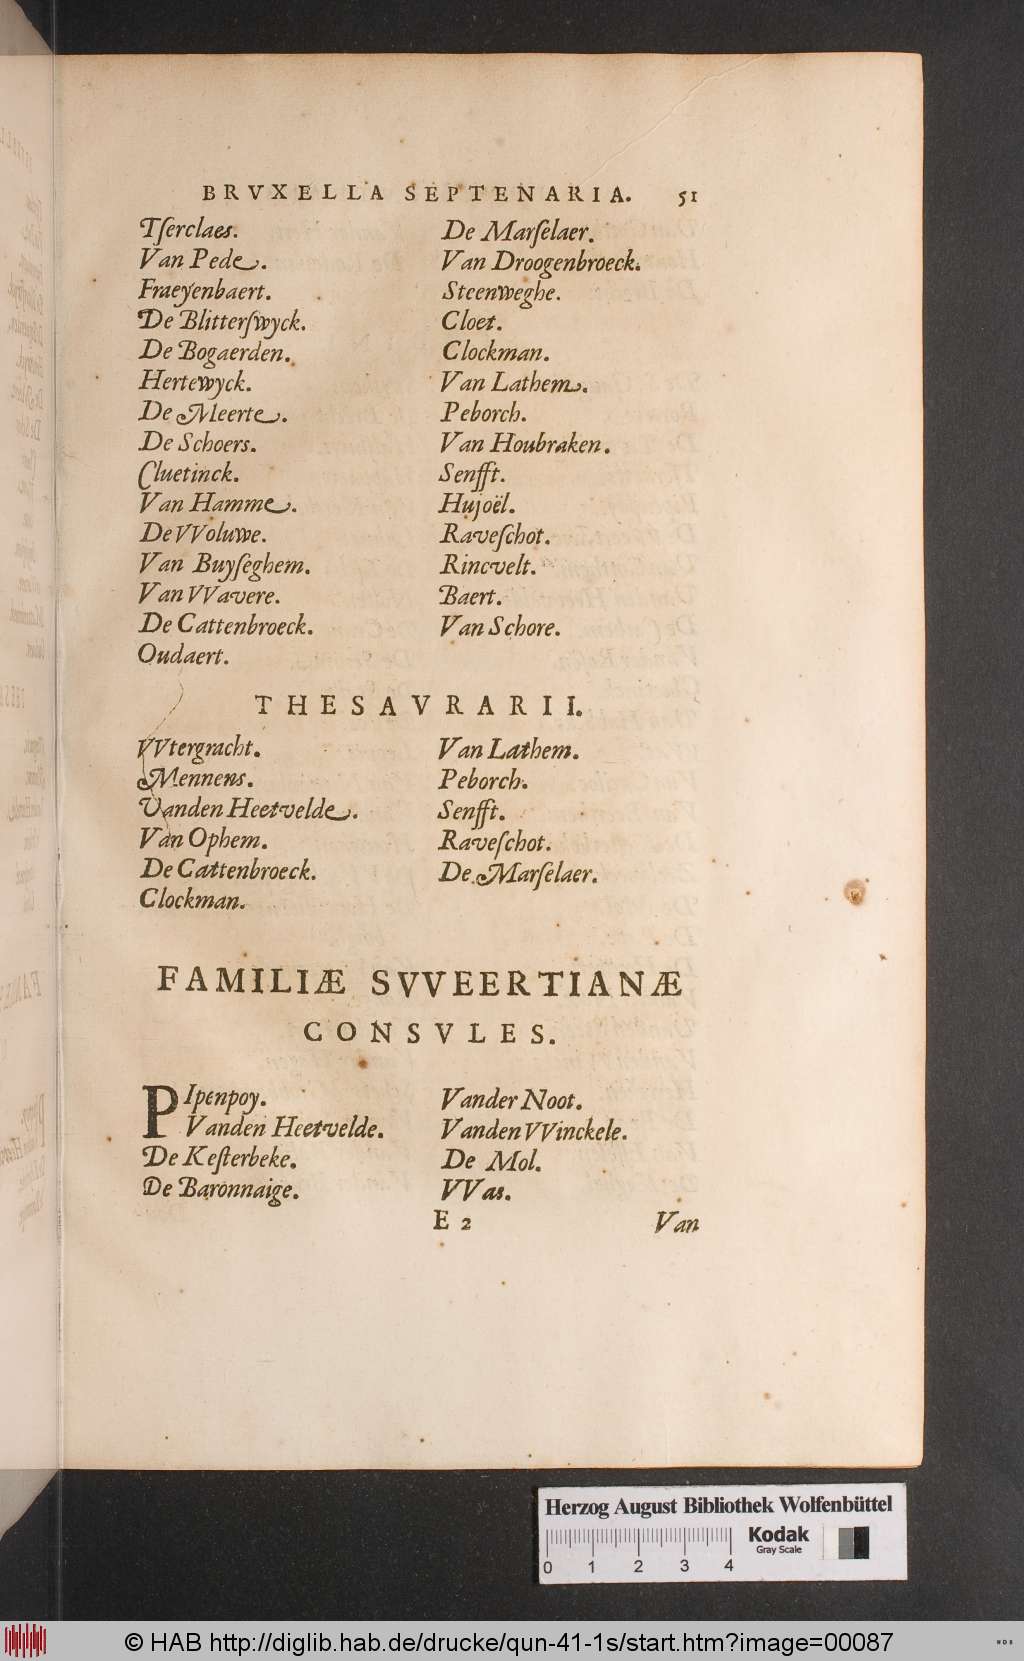 BRVXELLA SEPTENARIA. 51
Tſerclaes.
Van Pede.
Fraeyenbaert.
De Blitterſwyck.
De Bogaerden.
Hertewyck.
De Meerte.
De Schoers.
Cluetinck.
Van Hamme.
De VVoluwe.
Van Buyſeghem.
Van VVavere.
De Cattenbroeck.
Oudaert.
De Marſelaer.
Van Droogenbroeck.
Steenweghe.
Cloet.
Clockman.
Van Lathem.
Peborch.
Van Houbraken.
Senfft.
Hujoël.
Raveſchot.
Rincvelt.
Baert.
Van Schore.
THESAVRARII.
VVtergracht.
Mennens.
Vanden Heetvelde.
Van Ophem.
De Cattenbroeck.
Clockman.
Van Lathem.
Peborch.
Senfft.
Raveſchot.
De Marſelaer.
FAMILIÆ SVVEERTIANÆ
CONSVLES.
PIpenpoy.
Vanden Heetvelde.
De Keſterbeke.
De Baronnaige.
Vander Noot.
Vanden VVinckele.
De Mol.
VVas.
E 2 Van
Herzog August Bibliothek Wolfenbüttel
Kodak
Gray Scale
0 1 2 3 4
© HAB http://diglib.hab.de/drucke/qun-41-1s/start.htm?image=00087